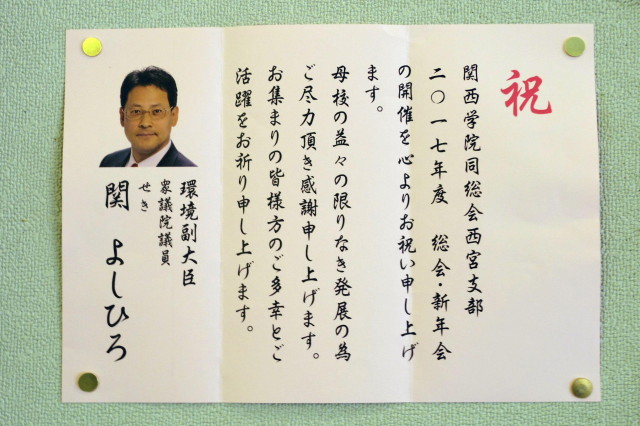 祝
関西学院同総会西宮支部
二〇一七年度 総会・新年会
の開催を心よりお祝い申し上げ
ます。
母校の益々の限りなき発展の為
ご尽力頂き感謝申し上げます。
お集まりの皆様方のご多幸とご
活躍をお祈り申し上げます。
環境副大臣
衆議院議員
せき
関 よしひろ